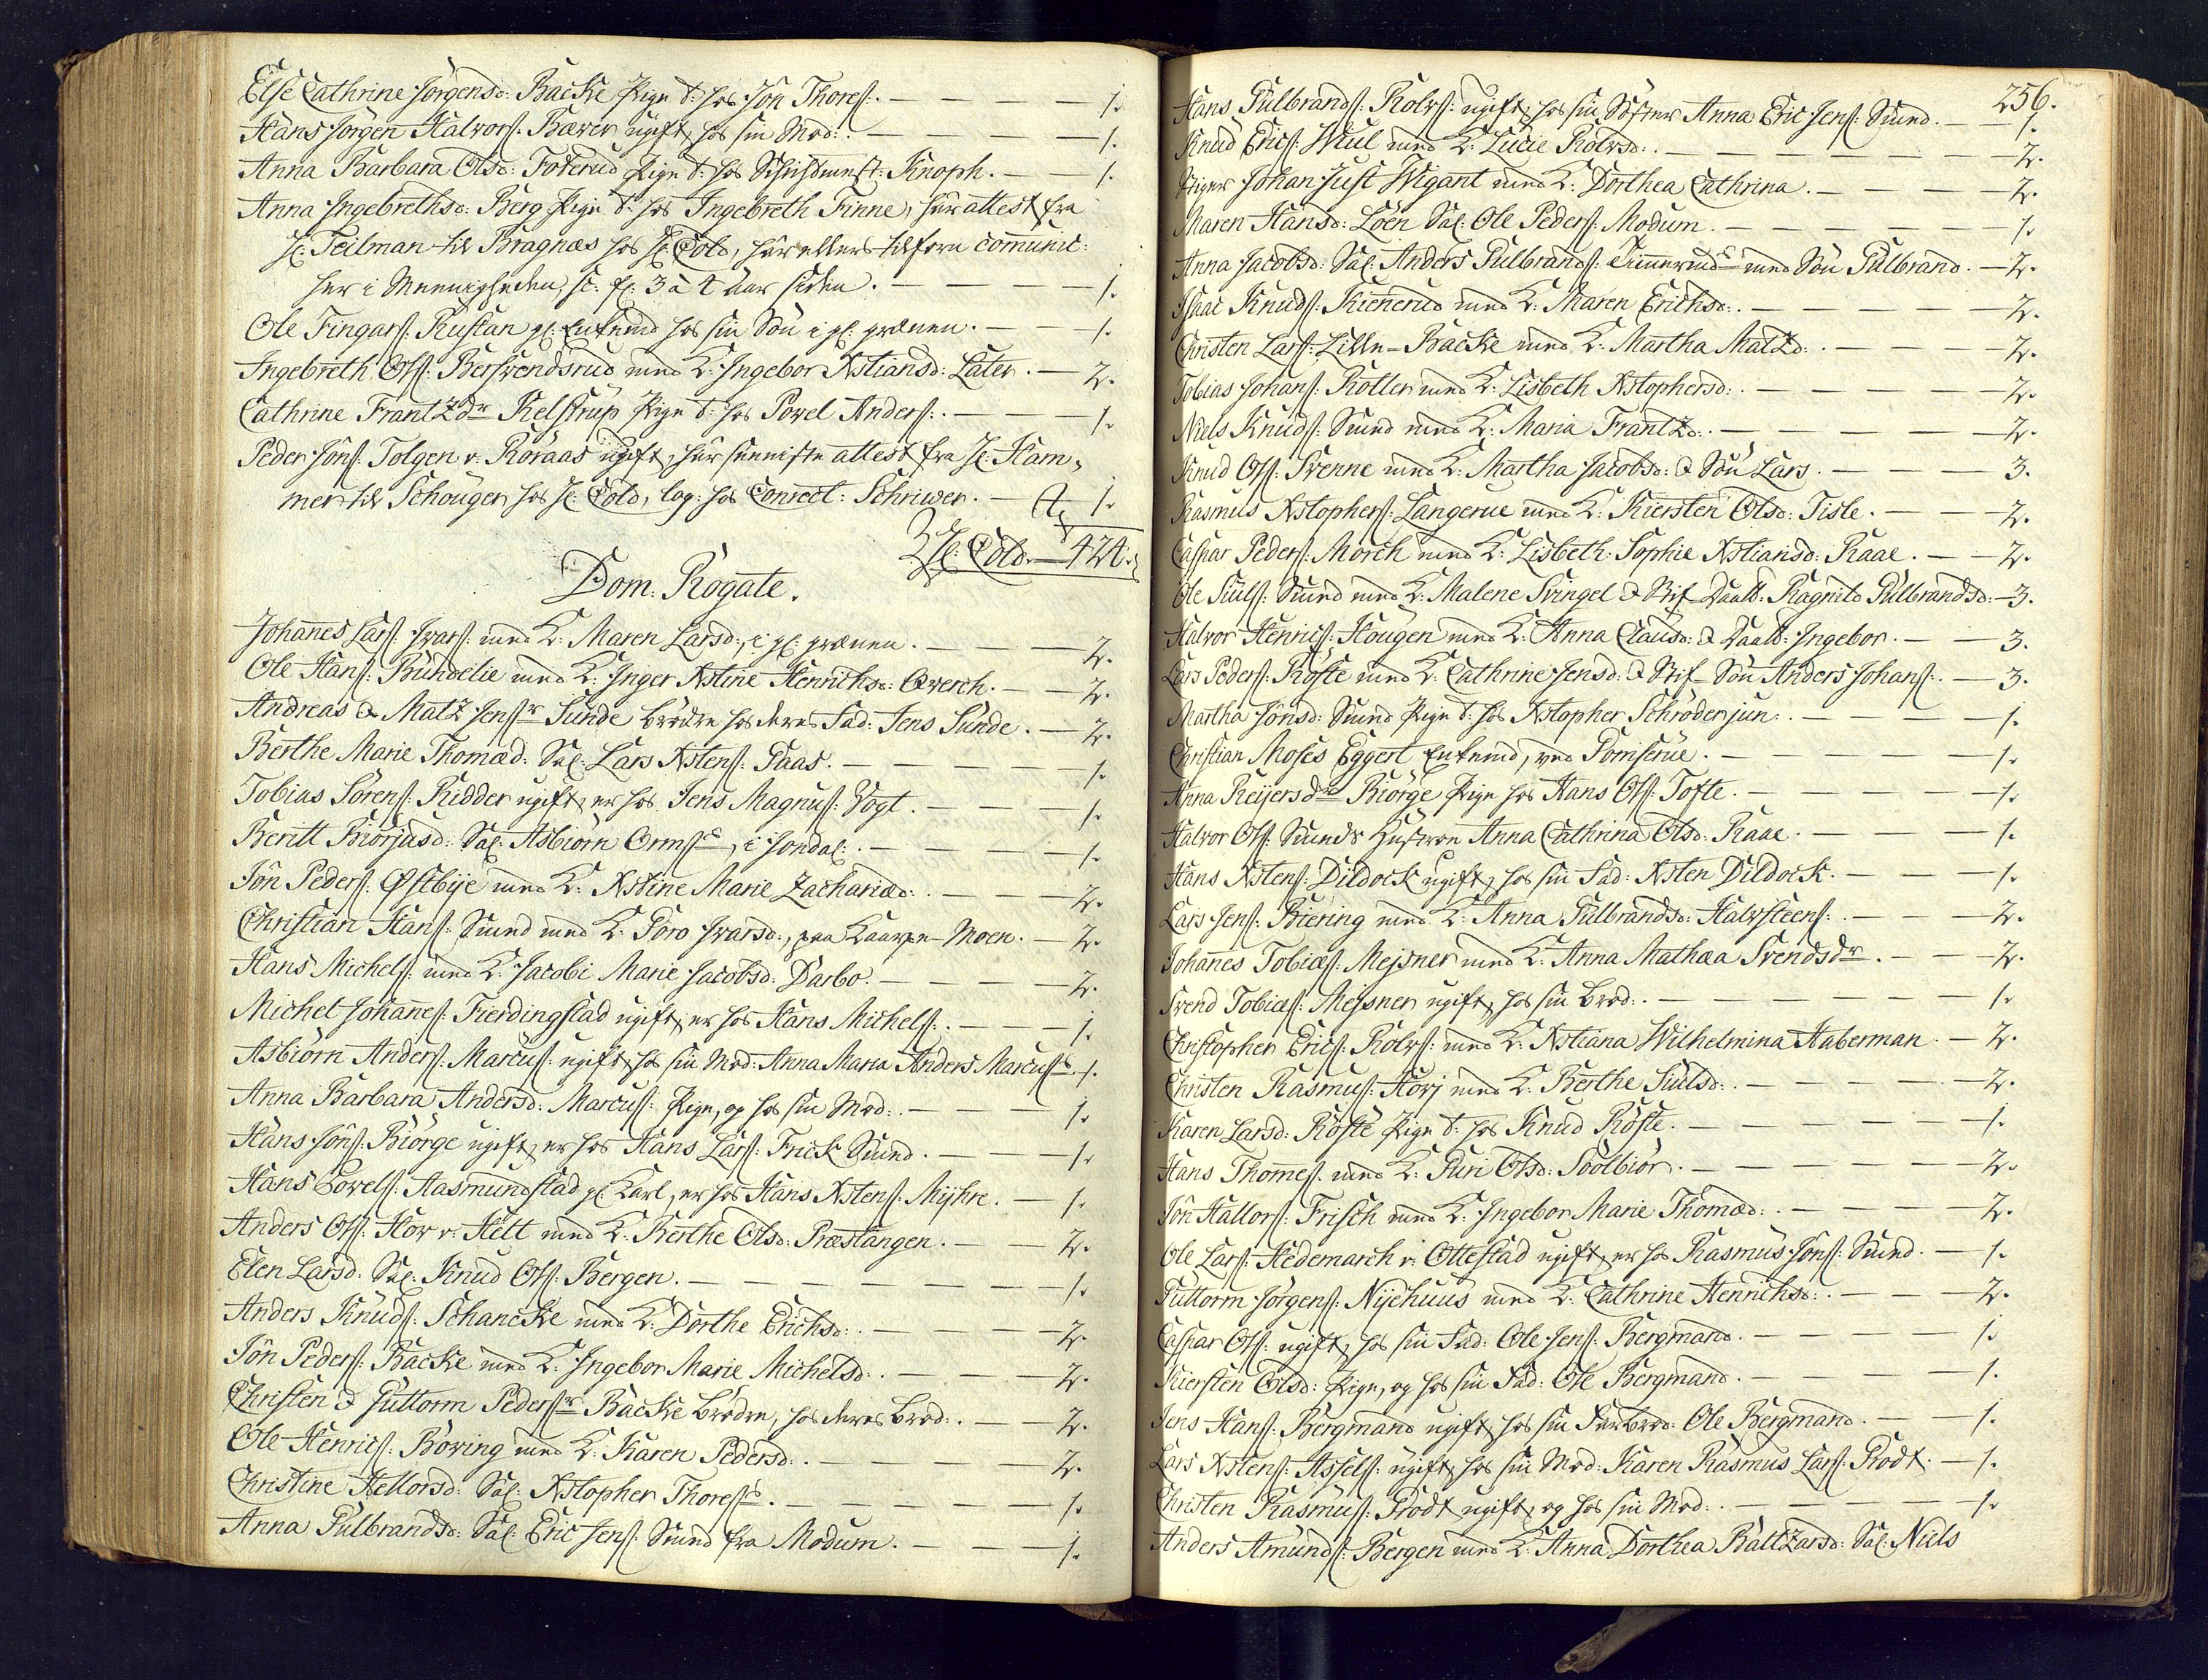 Else Cathrine Jørgensd: Backe Pige t: hos Jôn Thores: — 1.
Hans Jörgen Halvors: Bæver ugift, hos sin Mod: — 1.
Anna Barbara Olsd: Foterud Pige t: hos Schichtmest: Knoph. — 1.
Anna Ingebrethsd: Berg Pige t: hos Ingebreth Finne, har attest fra
H: Teilman til Bragnæs hos H: Cold, har ellers tilforn com̄unic:
her i Meenigheden, sc. for 3 à 4 Aar siden. — 1.
Ole Fingars: Rustan gl: Enkemd hos sin Søn i gl: grænen. — 1.
Ingebreth Ols: Bersvendsrud med K: Ingebor Xstiansd: Later. — 2.
Cathrine Frantzdr Kelstrup Pige t: hos Povel Anders: — 1.
Peder Jôns: Tolgen v. Röraas ugift, har seeniste attest fra H: Ham„
mer til Schouger hos H: Cold, log: hos Conrect: Schriwer. — 1.
H: Cold — 424.
Dom: Rogate.
Johañes Lars: Ivars: med K: Maren Larsd:, i gl: grænen. — 2.
Ole Hans: Bundelie med K: Inger Xstine Henrichsd: Qverch. — 2.
Andreas & Matz Jensr Sunde brödre hos deres Fad: Jens Sunde. — 2.
Berthe Marie Thomæd: Sal: Lars Xstens: Paas. — 1.
Tobias Sörens: Ridder ugift, er hos Jens Magnus: Vogt. — 1.
Beritt Biörjusd: Sal: Asbiörn Orms:, i Jondal: — 1.
Jôn Peders: Østbije med K: Xstine Marie Zachariæd: — 2.
Christian Hans: Smed med K: Goro Ivarsd:, paa Kaarpe-Moen. — 2.
Hans Michels: med K: Jacobi Marie Jacobsd: Darbo. — 2.
Michel Johañes: Fierdingstad ugift, er hos Hans Michels: — 1.
Asbiörn Anders: Marcus: ugift, hos sin Mod: Anna Maria Anders Marcus: — 1.
Anna Barbara Andersd: Marcus: Pige, og hos sin Mod: — 1.
Hans Jôns: Biörge ugift, er hos Hans Lars: Frick Smed. — 1.
Hans Povels: Aasmundstad gl: Karl, er hos Hans Xstens: Mijhre. — 1.
Anders Ols: Hov v. Hett med K: Berthe Olsd: Præstangen. — 2.
Elen Larsd: Sal: Knud Ols: Bergen. — 1.
Anders Knuds: Schancke med K: Dorthe Erichsd: — 2.
Jôn Peders: Backe med K: Ingebor Marie Michelsd: — 2.
Christen & Guttorm Pedersr Backe brödre, hos deres Brod: — 2.
Ole Henrics: Böring med K: Karen Pedersd: — 2.
Christine Hellorsd: Sal: Xstopher Thores: — 1.
Anna Gulbrandsd: Sal: Eric Jens: Smed fra Modum. — 1.
256.
Hans Gulbrands: Rolvs: ugift, hos sin Söster Anna Eric Jens: Smed. — 1.
Knud Erics: Wiul med K: Lucie Rolvsd: — 2.
Stiger Johan Just Wigant med K: Dorthea Cathrina. — 2.
Maren Hansd: Löen Sal: Ole Peders: Modum. — 1.
Anna Jacobsd: Sal: Anders Gulbrands: Tømermd: med Søn Gulbrand. — 2.
Isaac Knuds: Kiennerud med K: Maren Erichsd: — 2.
Christen Lars: Lille-Backe med K: Martha Matzd: — 2.
Tobias Johans: Roller med K: Lisbeth Xstophersd: — 2.
Niels Knuds: Smed med K: Maria Frantzd: — 2.
Knud Ols: Svenne med K: Martha Jacobsd: & Søn Lars. — 3.
Rasmus Xstophers: Langerue med K: Kiersten Olsd: Tisle. — 2.
Caspar Peders: Morch med K: Lisbeth Sophie Xstiansd: Raae. — 2.
Ole Siuls: Smed med K: Malene Svingel & Stif-Daatt: Ragnild Gulbrandsd: — 3.
Halvor Henrics: Hougen med K: Anna Clausd: & Daatt: Ingebor. — 3.
Lars Peders: Röste med K: Cathrine Jensd: & Stif-Søn Anders Johans: — 3.
Martha Jônsd: Smed Pige t: hos Xstopher Schröder jun: — 1.
Christian Moses Eggert Enkemd, ved Gomserue. — 1.
Anna Reijersdr Biörge Pige hos Hans Ols: Tofte. — 1.
Halvor Ols: Smeds Hustroe Anna Cathrina Olsd: Raae. — 1.
Hans Xstens: Dildock ugift, hos sin Fad: Xsten Dildock. — 1.
Lars Jens: Biering med K: Anna Gulbrandsd: Halvsteens: — 2.
Johañes Tobiæs: Mejsner med K: Anna Mathæa Svendsdr. — 2.
Svend Tobiæs: Mejsner ugift, hos sin Brod: — 1.
Christopher Erics: Rolvs: med K: Xstiana Wilhelmina Haberman. — 2.
Christen Rasmus: Hovj med K: Berthe Siulsd: — 2.
Karen Larsd: Röste Pige t: hos Knud Röste. — 1.
Hans Thomes: med K: Guri Olsd: Soolbiör. — 2.
Jôn Hallors: Frisch med K: Ingebor Marie Thomæd: — 2.
Ole Lars: Hedemarch v. Ottestad ugift, er hos Rasmus Jôns: Smed. — 1.
Guttorm Jörgens: Nijehuus med K: Cathrine Henrichsd: — 2.
Caspar Ols: ugift, hos sin Fad: Ole Jens: Bergmand. — 1.
Kiersten Olsd: Pige, og hos sin Fad: Ole Bergmand. — 1.
Jens Hans: Bergmand ugift, hos sin Farbrod: Ole Bergmand. — 1.
Lars Xstens: Assels: ugift, hos sin Mod: Karen Rasmus Lars: Rodt. — 1.
Christen Rasmus: Rodt ugift, og hos sin Mod: — 1.
Anders Amunds: Bergen med K: Anna Dorthea Baltzarsd: Sal: Niels